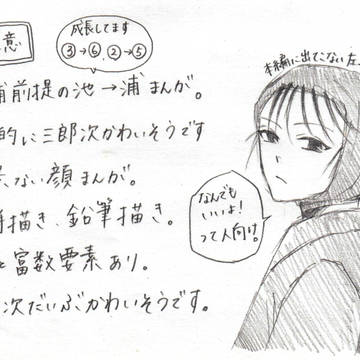 意
成長してます
③→⑥、②→⑤
前提の池→浦まんが。
的に三郎次かわいそうです
ない顔まんが。
描き、鉛筆描き。
富数要素あり。
次だいぶかわいそうです。
本編に出てこない左
なんでも
いいよ!
って人向け。